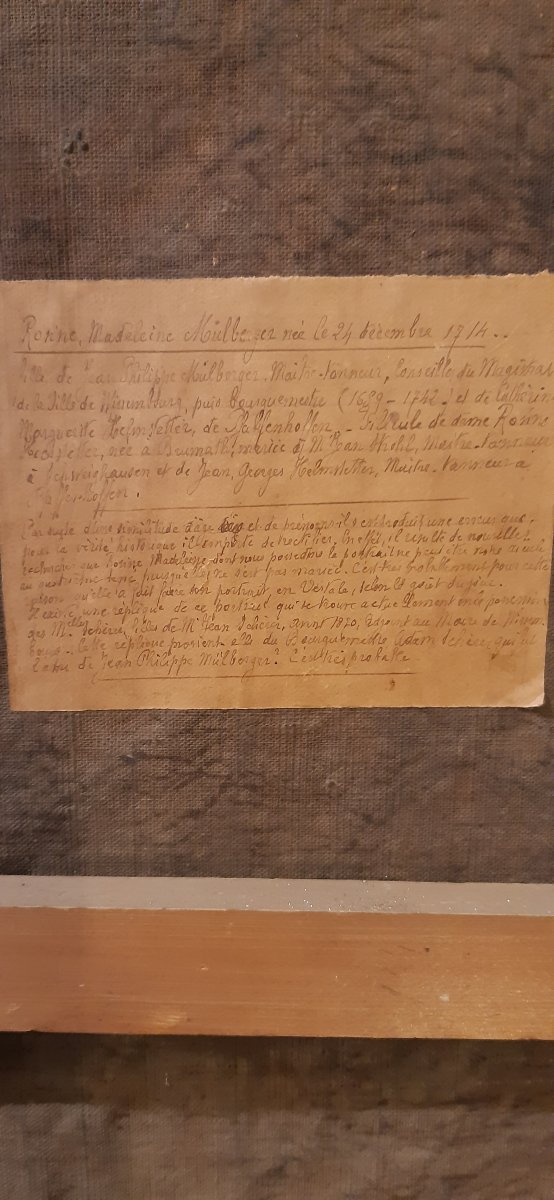 Ronne, Madeleine Mülberger née le 24 décembre 1714..
fille de Jean Philippe Mülberger, Maître-tanneur, Conseille du Magistrat
de la Ville de Wissembourg, puis Bourguemestre (1689 - 1742) et de Cathérine
Marguerite Helmstetter, de - filleule de dame Ronne
née à Brumath, mariée à M Jean Michel, Maître-tanneur
à Schweighausen et de Jean, Georges Helmstetter, Maître-tanneur à
Par suite d'une similitude d'âge et de prénoms il s'est produit une erreur que,
pour la vérité historique il importe de rectifier. En effet, il résulte de nouvelles
recherches que Rosine Madeleine dont nous possédons le portrait ne peut être
puisqu'elle ne s'est pas mariée. C'est très probablement pour cette
raison qu'elle a fait faire son portrait en Vestale, selon le goût du
Il existe une réplique de ce portrait qui se trouve actuellement en la possession
des Melles Schérer, filles de Mr Jean Schérer, avant 1870, adjoint au Maire de Wissem-
bourg. Cette réplique provient elle du Bourguemestre Adam Schérer, qui fut
de Jean Philippe Mülberger? C'est très probable